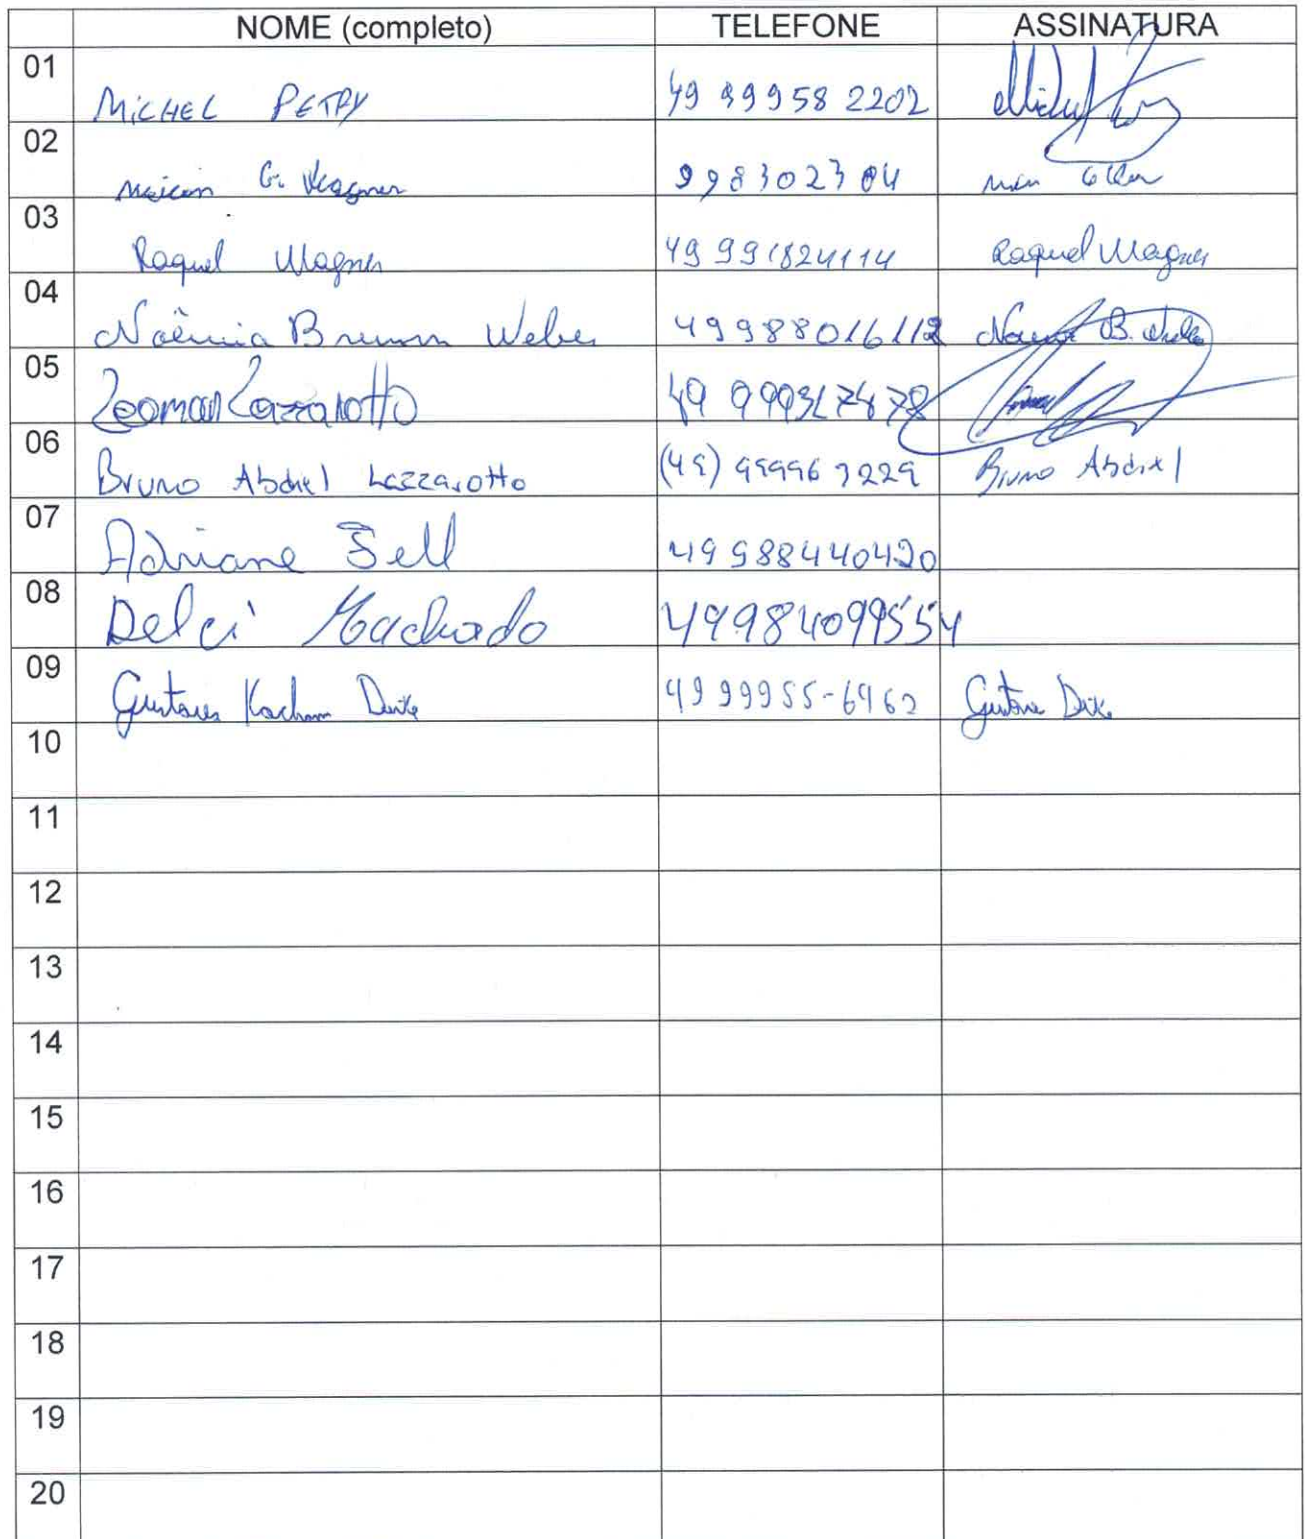 NOME (completo) TELEFONE ASSINATURA
01 MICHEL PETRY 49 99958 2202
02 G. Wagner 998302304
03 Raquel Wagner 49 991824114 Raquel Wagner
04 Noêmia Brumm Weber 49988016112
05 Leomar Lazzarotto 49
06 Bruno Abdiel Lazzarotto (49) 999963229 Bruno Abdiel
07 Adriane Sell 49988440420
08 Delci Machado 49984099554
09 Gustavo 49 99955-6962 Gustavo
10
11
12
13
14
15
16
17
18
19
20